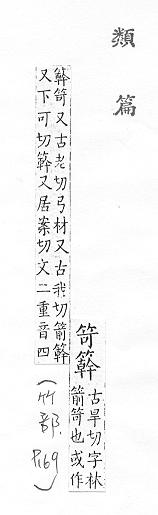 類篇
笴簳
古旱切字林
箭笴也或作
簳笴又古老切弓材又古我切箭簳
又下可切簳又居案切文二重音四
(竹部. P.169)